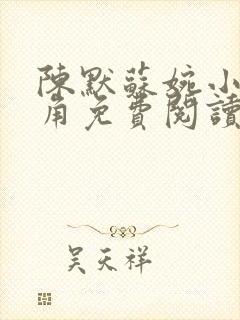 陳默蘇婉小
角免費閱讀
吴天祥